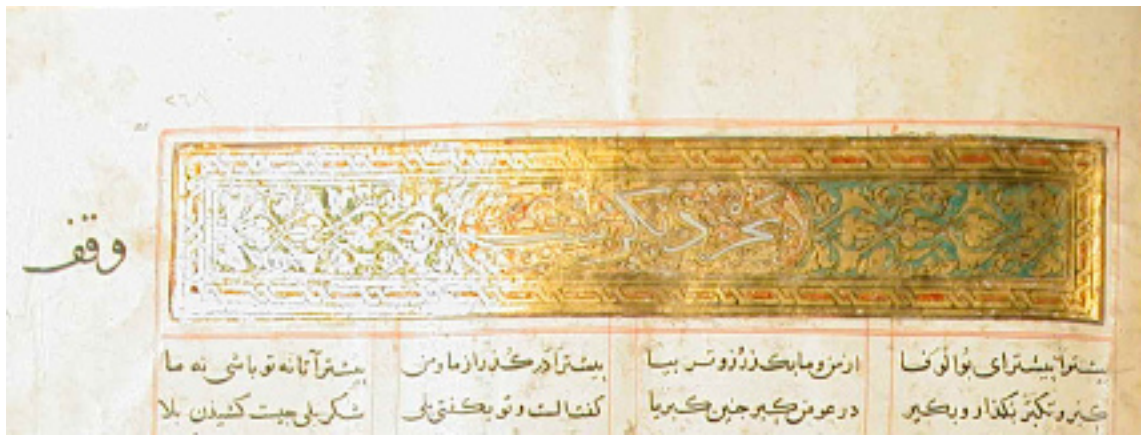 بحر دیگر
وقف
پیشترآ پیشترای بوالوفا ازمن وما بگذر و زوتر بیا پیشترآ درگذر ازما ومن پیشترآ تا نه تو باشی نه ما
کبر و تکبر بگذار و بگیر درعوض کبر چنین کبریا گفت الست و تو بگفتی بلی شکر بلی چیست کشیدن بلا